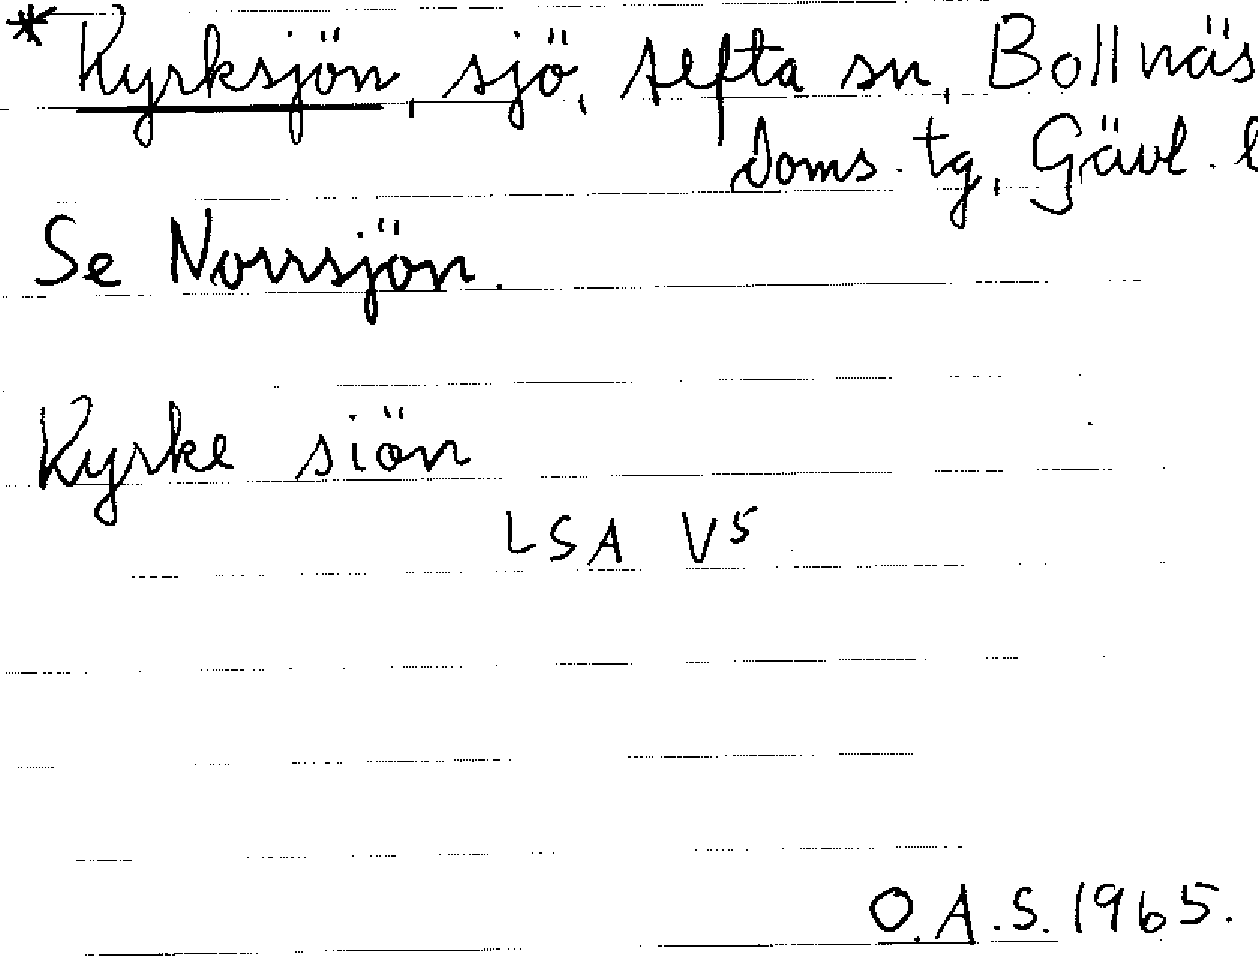 * Kyrksjön, sjö, Alfta sn, Bollnäs
Doms. tg, Gävl. l
Se Norrsjön.
Kyrke siön
LSA V5
O.A.S. 1965.